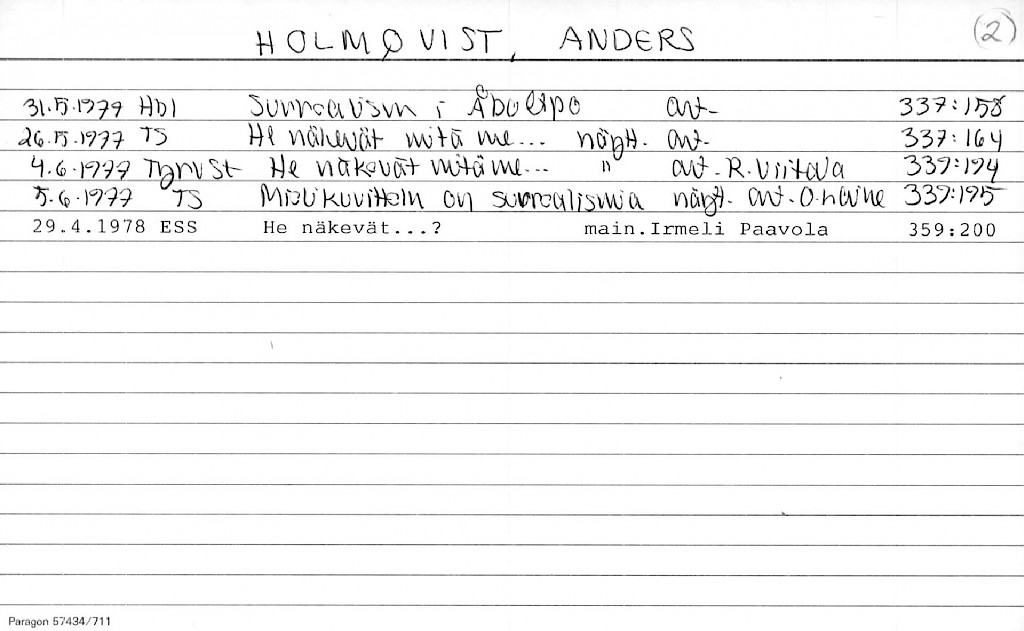 HOLMQVIST, ANDERS (2)
31.5.1977 Hbl Surrealism i Åboexpo art. 337:158
26.5.1977 TS He näkevät mitä me... näytt. art. 337:164
4.6.1977 TyrvSt He näkevät mitä me... " art. R.Viitala 339:194
5.6.1977 TS Mielikuvittelu on surrealismia näytt. art. O.Laine 339:195
29.4.1978 ESS He näkevät...? main.Irmeli Paavola 359:200
Paragon 57434/711